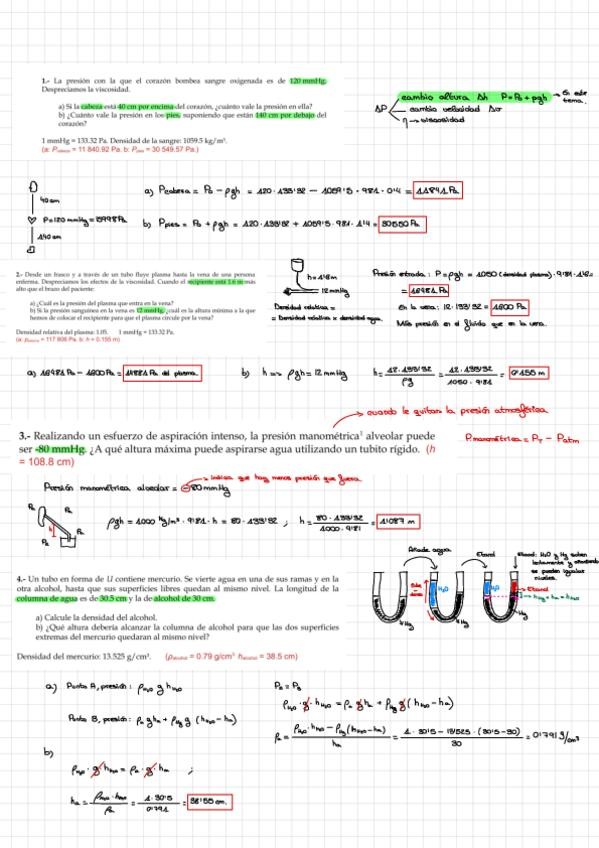 1.- La presión con la que el corazón bombea sangre oxigenada es de 120 mmHg.
Despreciamos la viscosidad.
a) Si la cabeza está 40 cm por encima del corazón, ¿cuánto vale la presión en ella?
b) ¿Cuánto vale la presión en los pies, suponiendo que están 140 cm por debajo del
corazón?
1 mmHg = 133.32 Pa. Densidad de la sangre: 1059.5 kg/m³.
(a: Pcabeza = 11 840.92 Pa. b: Ppies = 30 549.57 Pa.)
ΔP
cambio altura Δh P=P₀+ρgh → En este tema.
cambio velocidad Δv
η → viscosidad
40 cm
P=120 mmHg = 15998 Pa
140 cm
a) Pcabeza = P₀ - ρgh = 120·133'32 - 1059'5·9'81·0'4 = 11841 Pa
b) Ppies = P₀ + ρgh = 120·133'32 + 1059'5·9'81·1'4 = 30550 Pa
2.- Desde un frasco y a través de un tubo fluye plasma hasta la vena de una persona
enferma. Despreciamos los efectos de la viscosidad. Cuando el recipiente está 1.6 m más
alto que el brazo del paciente:
a) ¿Cuál es la presión del plasma que entra en la vena?
b) Si la presión sanguínea en la vena es 12 mmHg, ¿cuál es la altura mínima a la que
hemos de colocar el recipiente para que el plasma circule por la vena?
Densidad relativa del plasma: 1.05. 1 mmHg = 133.32 Pa.
h = 0.155 m)
h=1'6m
12 mmHg
Densidad relativa =
= Densidad relativa × densidad agua.
Presión entrada: P=ρgh = 1050 (densidad plasma)·9'81·1'6=
= 16481 Pa
En la vena: 12·133'32 = 1600 Pa
Más presión en el fluido que en la vena.
a) 16481 Pa - 1600 Pa = 14881 Pa del plasma
b) h => ρgh = 12 mmHg h = 12·133'32 / ρg = 12·133'32 / 1050·9'81 = 0'155 m
cuando le quitan la presión atmosférica
3.- Realizando un esfuerzo de aspiración intenso, la presión manométrica¹ alveolar puede
ser -80 mmHg. ¿A qué altura máxima puede aspirarse agua utilizando un tubito rígido. (h
= 108.8 cm)
Pmanométrica = PT - Patm
indica que hay menos presión que fuera.
Presión manométrica alveolar = -80 mmHg
h
ρgh = 1000 kg/m³·9'81·h = 80·133'32 ; h = 80·133'32 / 1000·9'81 = 1'087 m
4.- Un tubo en forma de U contiene mercurio. Se vierte agua en una de sus ramas y en la
otra alcohol, hasta que sus superficies libres quedan al mismo nivel. La longitud de la
columna de agua es de 30.5 cm y la de alcohol de 30 cm.
a) Calcule la densidad del alcohol.
b) ¿Qué altura debería alcanzar la columna de alcohol para que las dos superficies
extremas del mercurio quedaran al mismo nivel?
Densidad del mercurio: 13.525 g/cm³. (ρalcohol = 0.79 g/cm³ halcohol = 38.5 cm)
Añade agua
Etanol
H₂O
Hg
H₂O
Etanol
Hg
a) Punto A, presión: ρH₂O g hH₂O
Punto B, presión: ρa g ha + ρHg g (hH₂O - ha)
PA = PB
ρH₂O·g·hH₂O = ρa g ha + ρHg g (hH₂O - ha)
ρa = ρH₂O·hH₂O - ρHg (hH₂O - ha) / ha = 1·30'5 - 13'525·(30'5-30) / 30 = 0'791 g/cm³
b)
ρH₂O·g·hH₂O = ρa·g·ha ;
ha = ρH₂O·hH₂O / ρa = 1·30'5 / 0'791 = 38'55 cm.